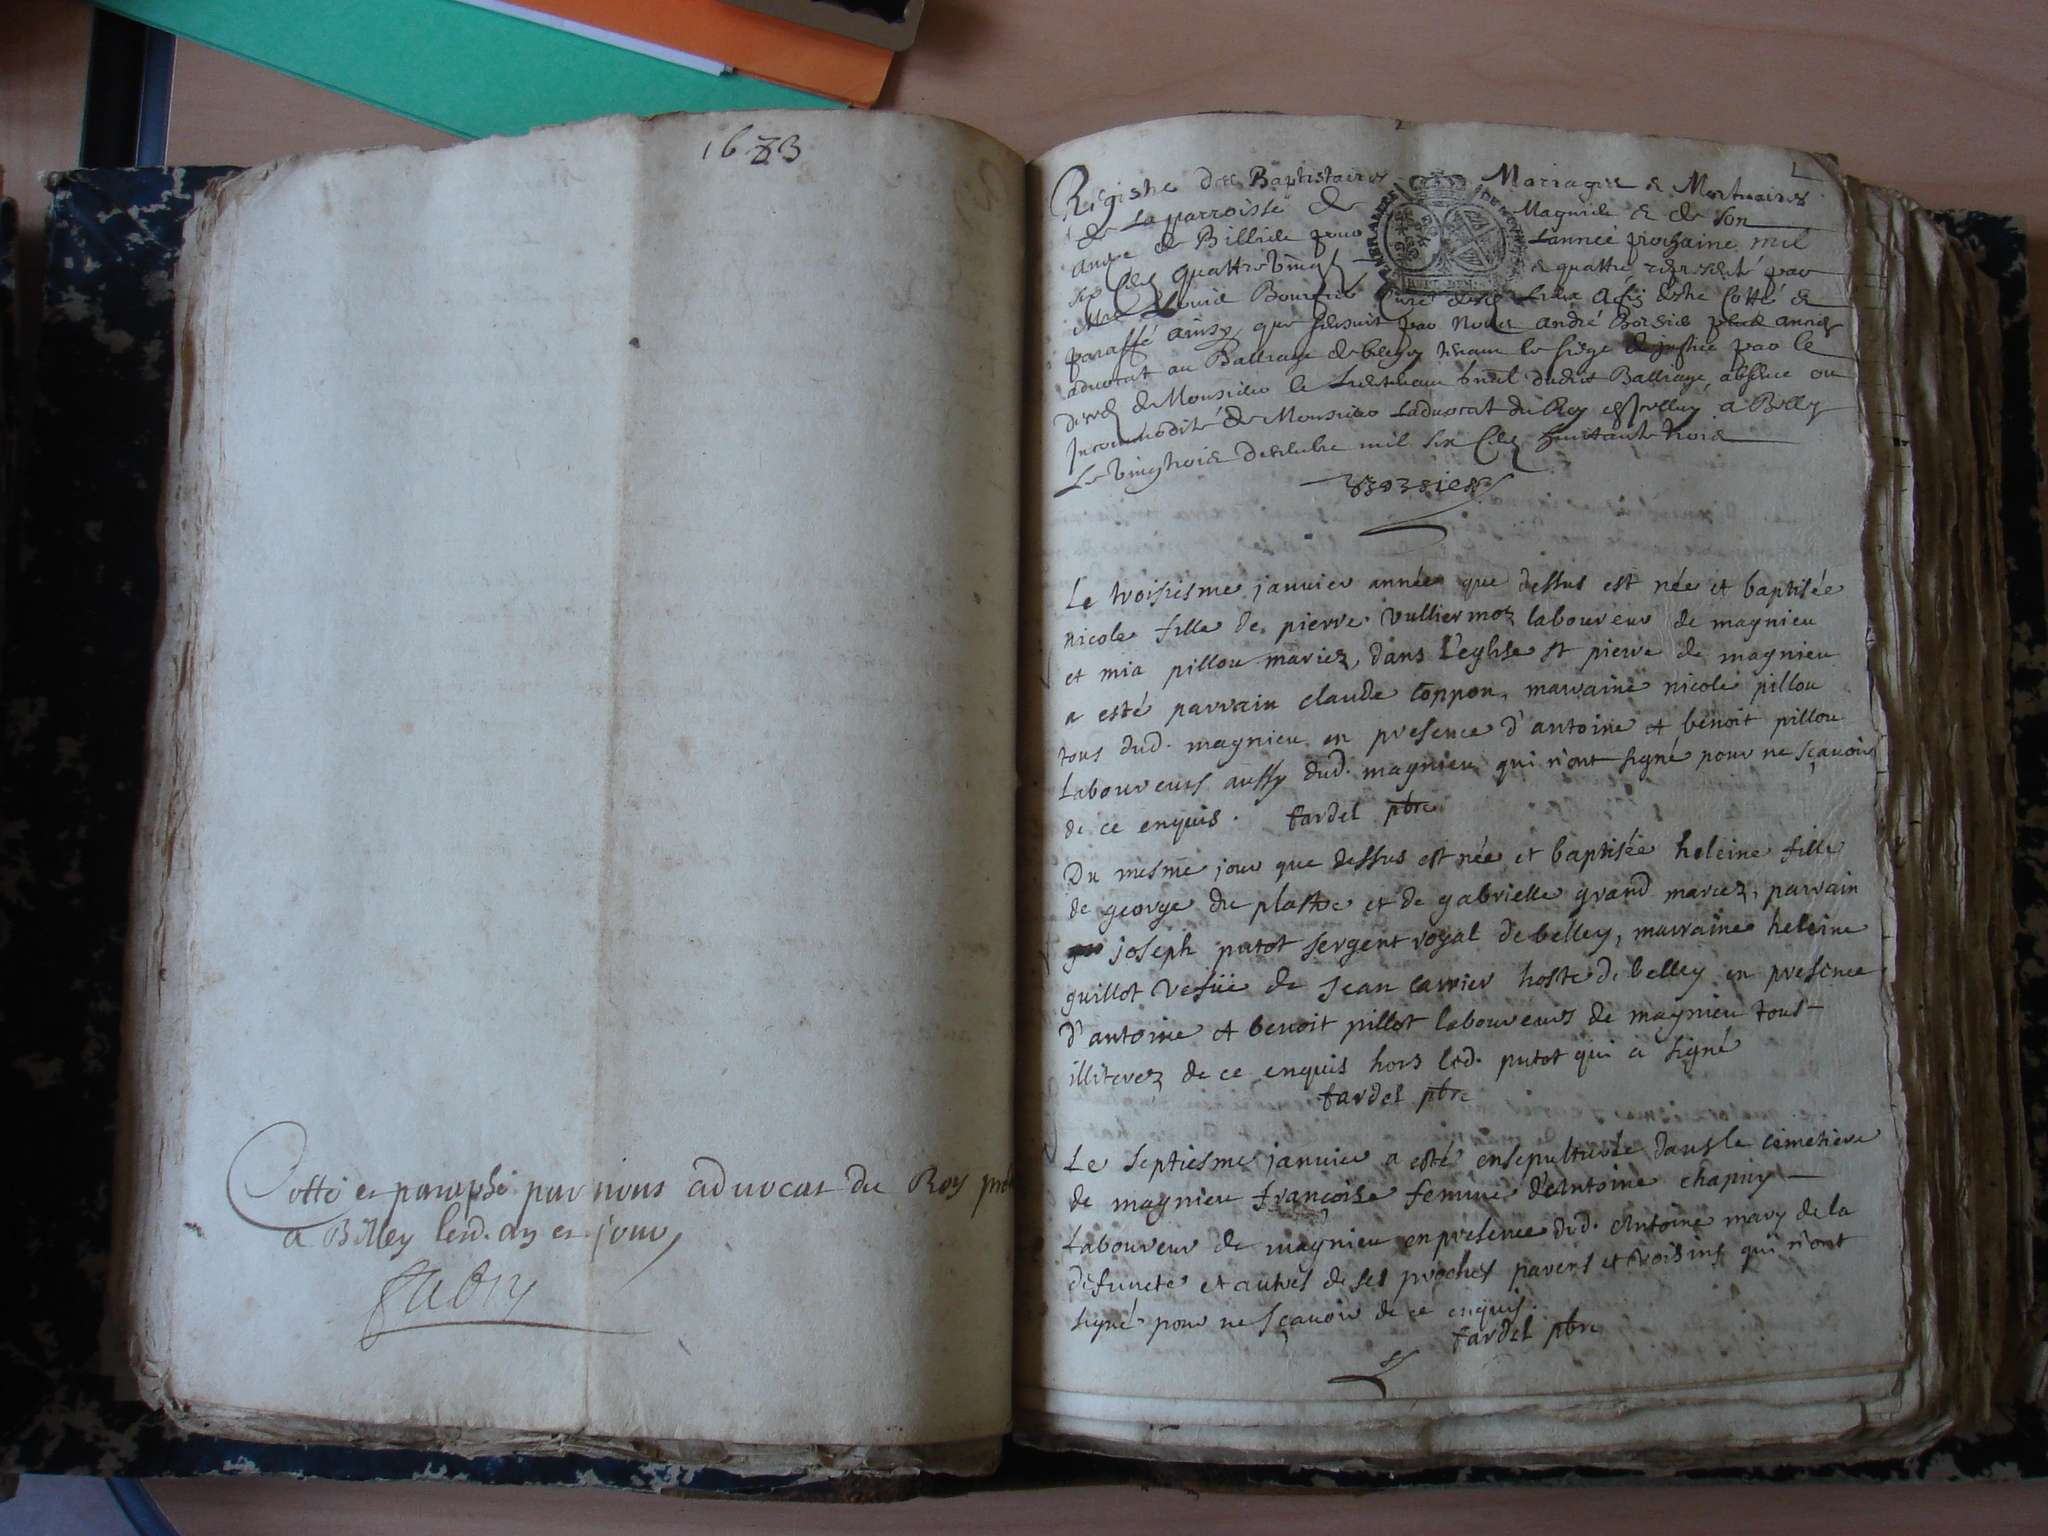 1683
Cotté et paraphé par nous advocat du Roy
a Belley led. an et jour
Fabry
Registre des Baptistaires Mariages & Mortuaires
de La parroisse de Magnieu & de son
de Billieu pour Lannée prochaine mil
six Cens quattre vingt & quattre par
Louis
paraffé ainsy que sensuit par Nous André Borsier
advocat au Balliage de belley tenant le siege de justice par le
de Monsieur le Lieutenant dudict Balliage, absence ou
Incommodité de Monsieur Ladvocat du Roy a Belley
Le vingtrois mil six Cens huictante trois
Le troisiesme janvier année que dessus est née et baptisée
nicole fille de pierre vulliermoz laboureur de magnieu
et mia pillou mariez, dans L'eglise st pierre de magnieu
a esté parrain claude Coppon, marraine nicole pillou
tous dud. magnieu en presence d'antoine et benoit pillou
Laboureurs aussy dud. magnieu qui n'ont signé pour ne sçauoir
de ce enquis. tardel pbre
Du mesme jour que dessus est née et baptisée heleine fille
de george du plastre et de gabrielle grand mariez, parrain
joseph putot sergent royal de belley, marraine heleine
guillot vefüe de Jean carrier hoste de belley en presence
d'antoine et benoit pillot laboureurs de magnieu tous
illiterez de ce enquis hors led. putot qui a signé
tardel pbre
Le septiesme janvier a esté ensepulturée dans le cimetiere
de magnieu françoise femme d'Antoine chapuy
Laboureur de magnieu en presence dud. Antoine mary de la
defuncte et autres de ses proches parens et voisins qui n'ont
signé pour ne sçauoir de ce enquis.
tardel pbre